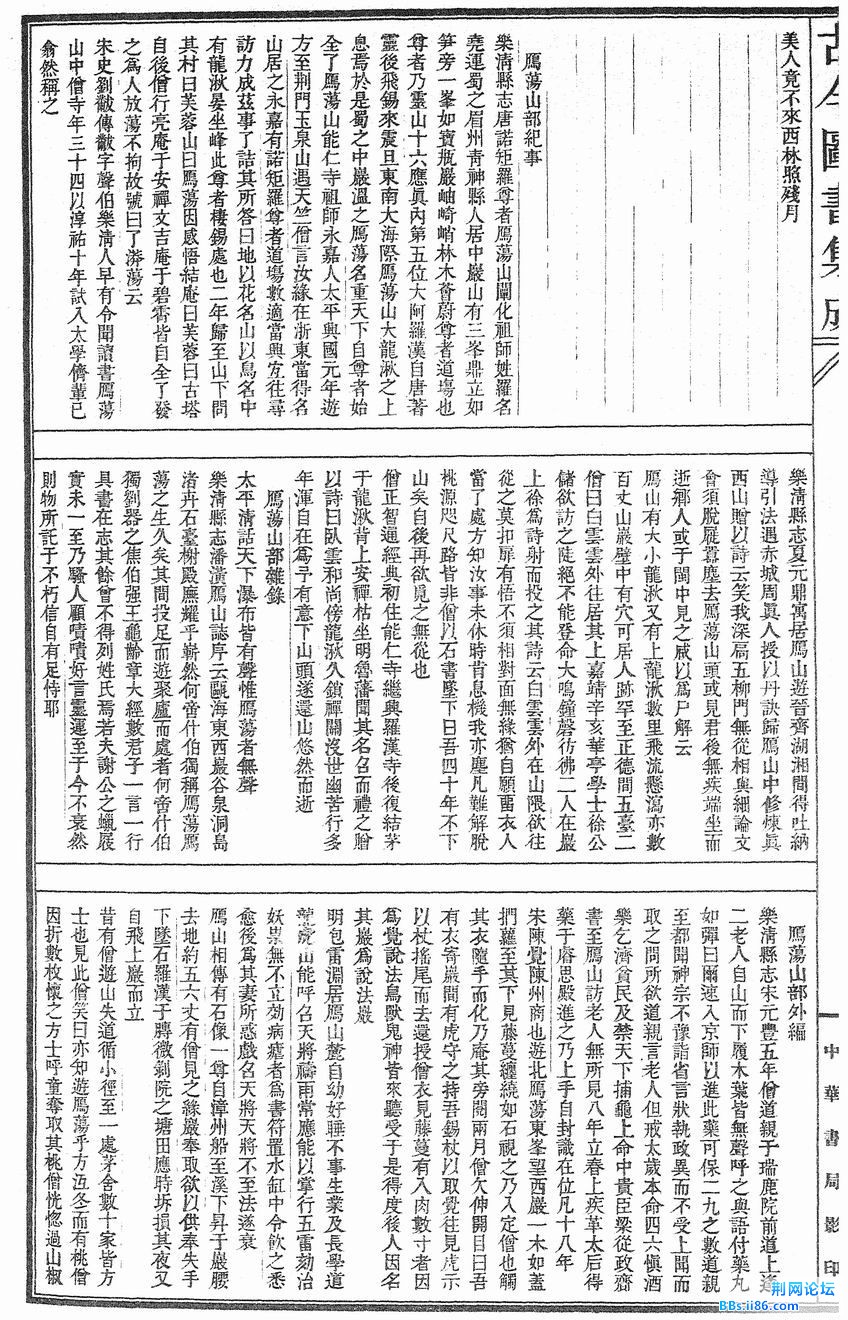 古今圖書集成
美人竟不來西林照殘月
鴈蕩山部紀事
樂清縣志唐諾矩羅尊者鴈蕩山開化祖師姓羅名
堯運蜀之眉州靑神縣人居中巖山有三峯鼎立如
笋旁一峯如寶瓶巖岫崎峭林木蓊蔚尊者道塲也
尊者乃靈山十六應眞內第五位大阿羅漢自唐著
靈後飛錫來震旦東南大海際鴈蕩山大龍湫之上
息焉於是蜀之中巖溫之鴈蕩名重天下自尊者始
全了鴈蕩山能仁寺祖師永嘉人太平興國元年遊
方至荆門玉泉山遇天竺僧言汝緣在浙東當得名
山居之永嘉有諾矩羅尊者道塲數適當興宐往尋
訪力成茲事了詰其所答曰地以花名山以鳥名中
有龍湫晏坐峰此尊者棲錫處也二年歸至山下問
其村曰芙蓉山曰鴈蕩因感悟結庵曰芙蓉曰古塔
自後僧行亮庵于安禪文吉庵于碧霄皆自全了發
之爲人放蕩不拘故號曰了漭蕩云
宋史劉黻傳黻字聲伯樂淸人早有令聞讀書鴈蕩
山中僧寺年三十四以淳祐十年試入太學儕輩已
翕然稱之
樂淸縣志夏元鼎寓居鴈山遊晉齊湖湘間得吐納
導引法遇赤城周眞人授以丹訣歸鴈山中修煉眞
西山贈以詩云笑我深扃五柳門無從相與細論文
會須脫屣囂塵去鴈蕩山頭或見君後無疾端坐而
逝鄕人或于閩中見之咸以爲尸解云
鴈山有大小龍湫又有上龍湫數里飛流懸瀉亦數
百丈山巖壁中有穴可居人跡罕至正德間五臺二
僧曰白雲雲外往居其上嘉靖辛亥華亭學士徐公
儲欲訪之陡絕不能登命大鳴鐘磬彷彿二人在巖
上徐爲詩射而投之其詩云白雲雲外在山隈欲往
從之莫扣扉有悟不須相對面無緣猶自願畱衣人
當了處方知汝事未休時肯息機我亦塵凡難解脫
桃源咫尺路皆非僧以石書墜下曰吾四十年不下
山矣自後再欲覓之無從也
僧正智通經典初住能仁寺繼興羅漢寺後復結茅
于龍湫背上安禪枯坐明魯藩聞其名召而禮之贈
以詩曰臥雲和尚傍龍湫久鎖禪關沒世幽苦行多
年渾自在爲予有意下山頭遂還山悠然而逝
鴈蕩山部雜錄
太平淸話天下瀑布皆有聲惟鴈蕩者無聲
樂淸縣志潘潢鴈山誌序云甌海東西巖谷泉洞島
渚卉石臺榭殿廡耀乎嶄然何啻什伯獨稱鴈蕩鴈
蕩之生久矣其間投足而遊聚廬而處者何啻什伯
獨劉器之焦伯强王龜齡章大經數君子一言一行
具書在志其餘曾不得列姓氏焉若夫謝公之蠟屐
實未一至乃騷人顧嘖嘖好言靈運至于今不衰然
則物所託于不朽信自有足恃耶
鴈蕩山部外編
樂淸縣志宋元豐五年僧道親于瑞鹿院前道上逢
二老人自山而下履木葉皆無聲呼之與語付藥丸
如彈曰爾速入京師以進此藥可保二九之數道親
至都聞神宗不豫詣省言狀執政異而不受上聞而
取之問所欲道親言老人但戒太歲本命四六愼酒
樂乞濟貧民及禁天下捕龜上命中貴臣梁從政齎
書至鴈山訪老人無所見八年立春上疾革太后得
藥于睿思殿進之乃上手自封識在位凡十八年
宋陳覺陳州商也遊北鴈蕩東峯望西巖一木如蓋
捫蘿至其下見藤蔓纏繞如石視之乃入定僧也觸
其衣隨手而化乃庵其旁閱兩月僧欠伸開目曰吾
有衣寄巖間有虎守之持吾錫杖以取覺往見虎示
以杖搖尾而去還授僧衣見藤蔓有入肉數寸者因
爲覺說法鳥獸鬼神皆來聽受于是得度後人因名
其巖爲說法巖
明包雷淵居鴈山麓自幼好睡不事生業及長學道
龍虎山能呼召天將禱雨常應能以掌行五雷劾治
妖祟無不立効病瘧者爲書符置水缸中令飮之悉
愈後爲其妻所惑戲名天將天將不至法遂衰
鴈山相傳有石像一尊自漳州船至溪下昇于巖腰
去地約五六丈有僧見之緣巖奉取欲以供奉失手
下墜石羅漢于膊微剝院之塘田應時坼損其夜又
自飛上巖而立
昔有僧遊山失道循小徑至一處茅舍數十家皆方
士也見此僧笑曰亦知遊鴈蕩乎方沍冬而有桃僧
因折數枚懷之方士呼童奪取其桃僧恍惚過山椒
中華書局影印
荆网论坛
BBs.ii86.com